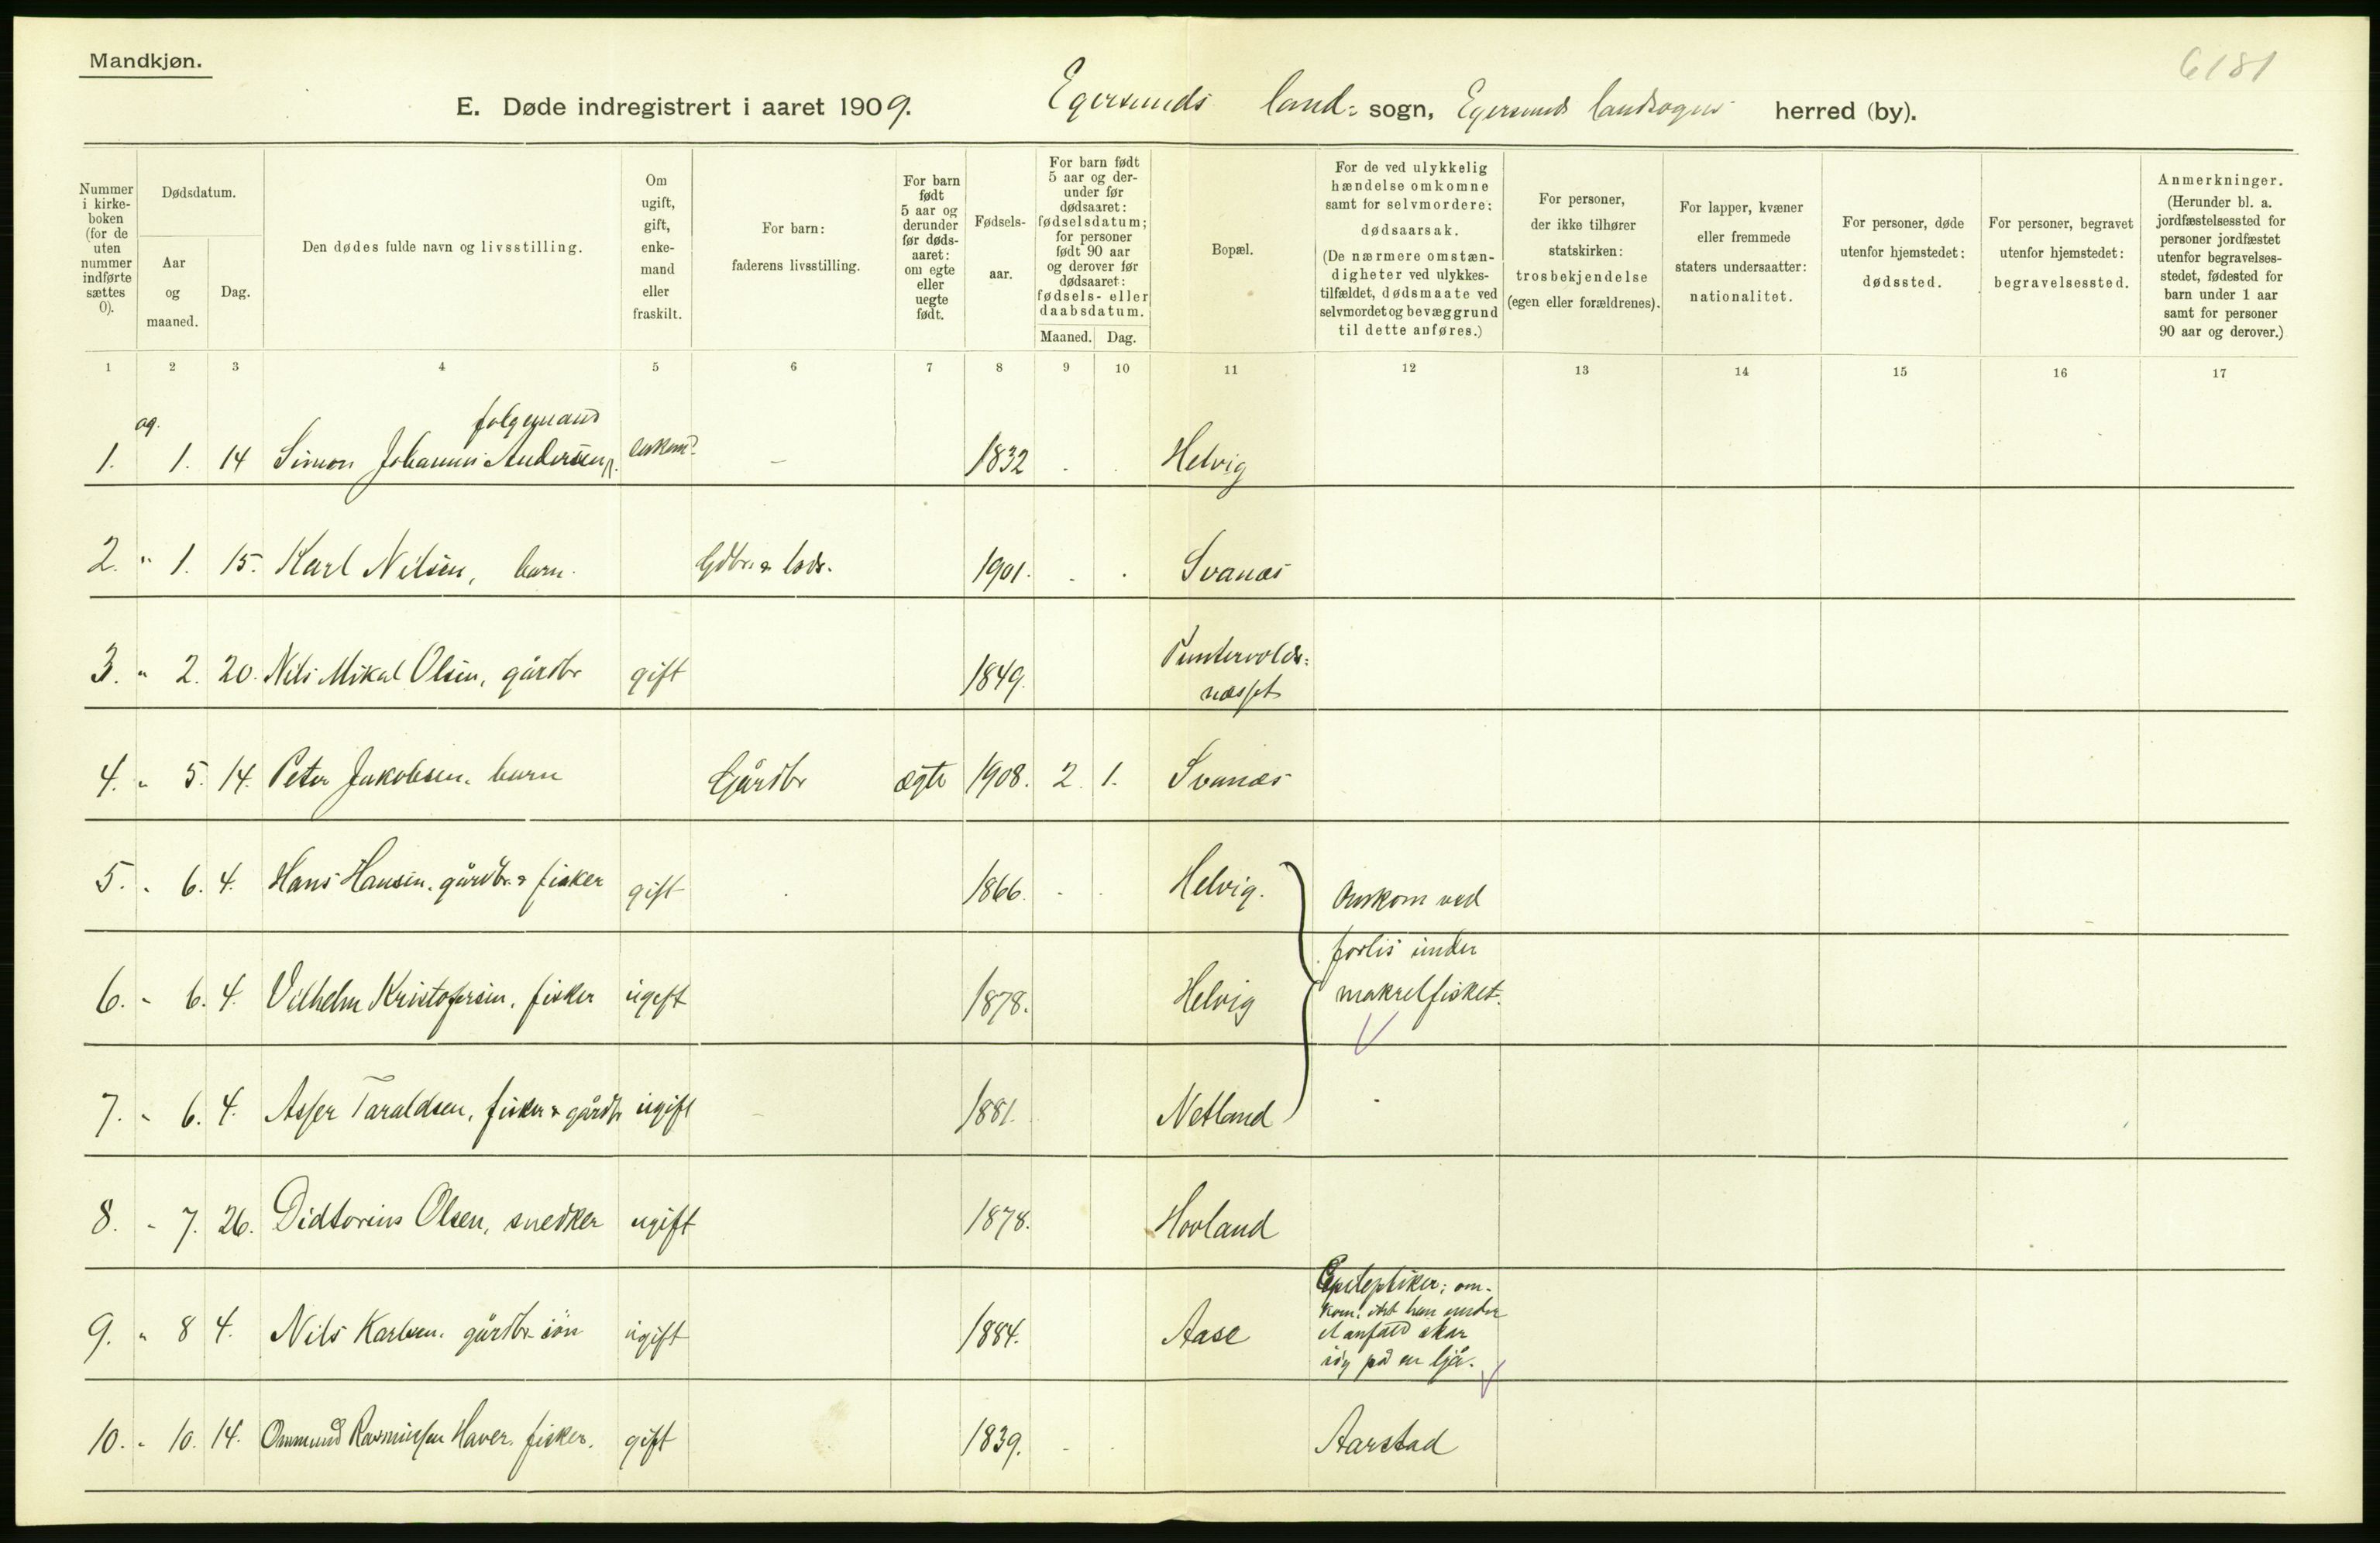 Mandkjøn.
6181
E. Døde indregistrert i aaret 1909. Egersunds land- sogn, Egersunds landsogns herred (by).
Nummer i kirke-boken (for de uten nummer indførte sættes 0).
Dødsdatum.
Aar og maaned.
Dag.
Den dødes fulde navn og livsstilling.
Om ugift, gift, enke-mand eller fraskilt.
For barn: faderens livsstilling.
For barn født 5 aar og derunder før døds-aaret: om egte eller uegte født.
Fødsels-aar.
For barn født 5 aar og der-under før dødsaaret: fødselsdatum; for personer født 90 aar og derover før dødsaaret: fødsels- eller daabsdatum.
Maaned. Dag.
Bopæl.
For de ved ulykkelig hændelse omkomne samt for selvmordere: dødsaarsak. (De nærmere omstæn-digheter ved ulykkes-tilfældet, dødsmaate ved selvmordet og bevæggrund til dette anføres.)
For personer, der ikke tilhører statskirken: trosbekjendelse (egen eller forældrenes).
For lapper, kvæner eller fremmede staters undersaatter: nationalitet.
For personer, døde utenfor hjemstedet: dødssted.
For personer, begravet utenfor hjemstedet: begravelsessted.
Anmerkninger. (Herunder bl. a. jordfæstelsessted for personer jordfæstet utenfor begravelses-stedet, fødested for barn under 1 aar samt for personer 90 aar og derover.)
1 2 3 4 5 6 7 8 9 10 11 12 13 14 15 16 17
09. folgemand
1. 1. 14 Simon Johannes Andersen, enkem. – 1832 Helvig
2. " 1. 15. Karl Nilsen, barn. Gdbr. & lods. 1901. Svanæs
3. " 2. 20. Nils Mikal Olsen, gårdbr gift 1849. Puntervolds-
næsset
4. " 5. 14. Peter Jakobsen, barn Gårdbr ægte 1908. 2. 1. Svanæs
5. " 6. 4. Hans Hansen, gårdbr. & fisker gift 1866. Helvig. Omkom ved
forlis under
6. " 6. 4. Vilhelm Kristofersen, fisker ugift 1878. Helvig makrelfisket.
7. " 6. 4. Asser Taraldsen, fisker & gårdbr ugift 1881. Netland
8. " 7. 26. Didtorius Olsen, snedker ugift 1878. Hovland
9. " 8 4. Nils Karlsen, gårdbr. søn ugift 1884. Aase Epileptiker; om-
kom, idet han under
et anfald skar
sig på en ljå.
10. " 10. 14. Ommund Rasmussen Haver, fisker. gift 1839. Aarstad